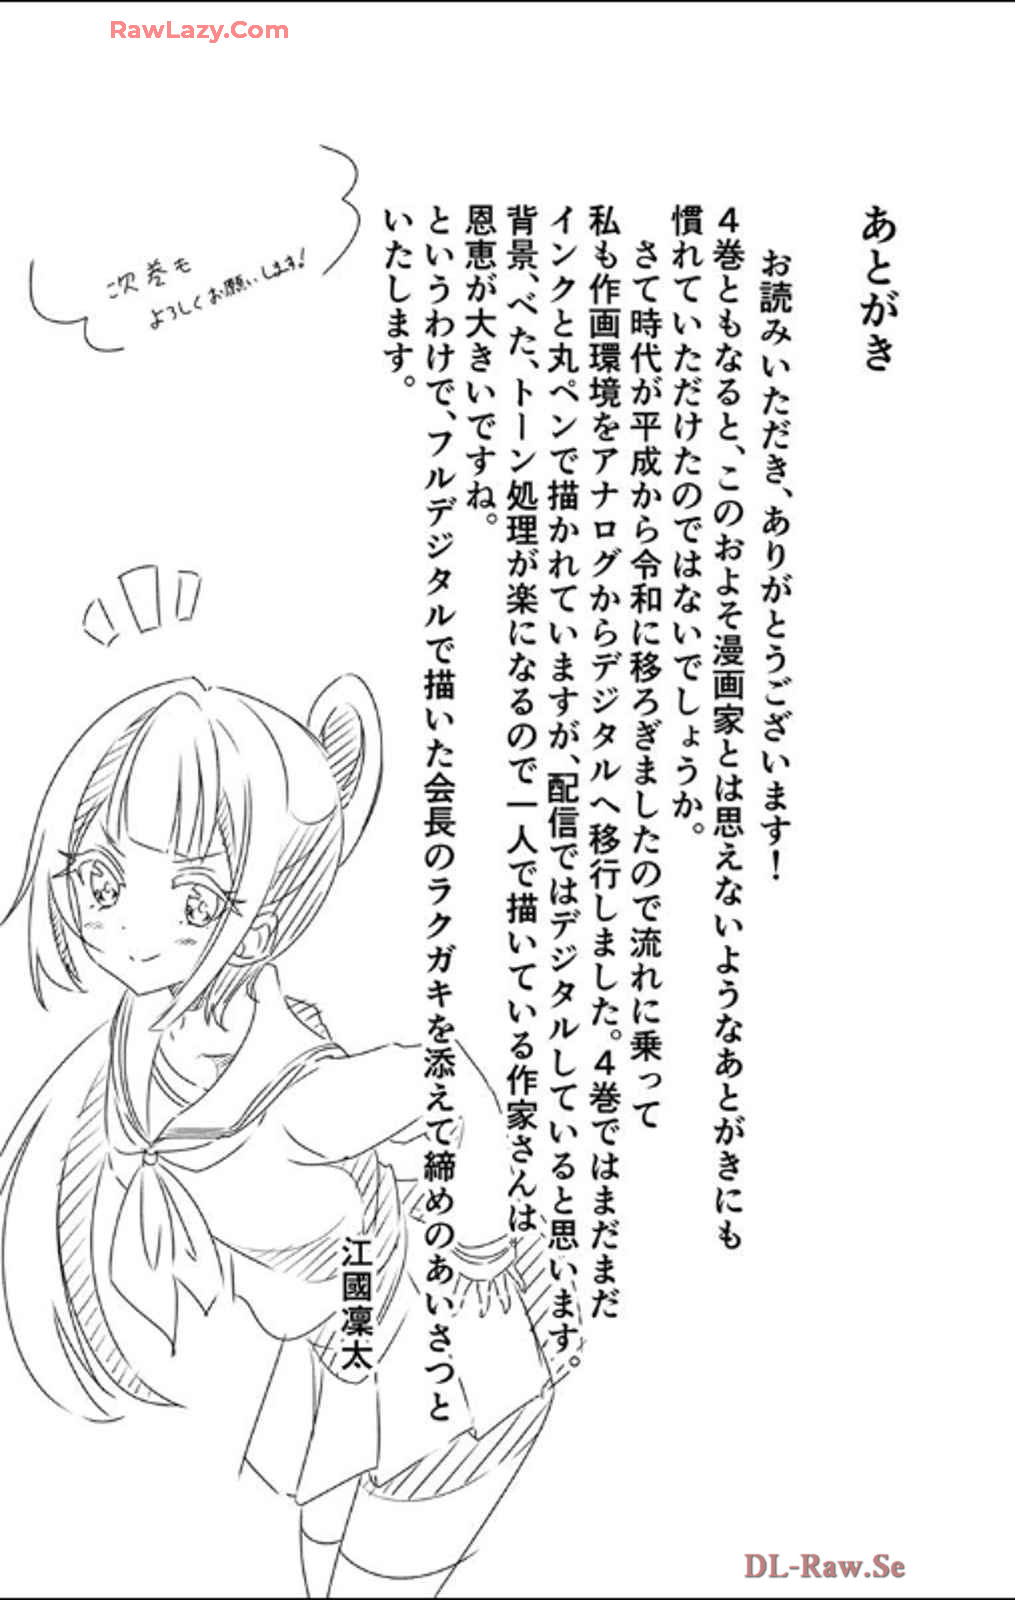 RawLazy.Com
あとがき
お読みいただき、ありがとうございます！
４巻ともなると、このおよそ漫画家とは思えないようなあとがきにも
慣れていただけたのではないでしょうか。
さて時代が平成から令和に移ろぎましたので流れに乗って
私も作画環境をアナログからデジタルへ移行しました。４巻ではまだまだ
インクと丸ペンで描かれていますが、配信ではデジタルしていると思います。
背景、べた、トーン処理が楽になるので一人で描いている作家さんは
恩恵が大きいですね。
というわけで、フルデジタルで描いた会長のラクガキを添えて締めのあいさつと
いたします。
江國凜太
次巻も
よろしくお願いします!
DL-Raw.Se